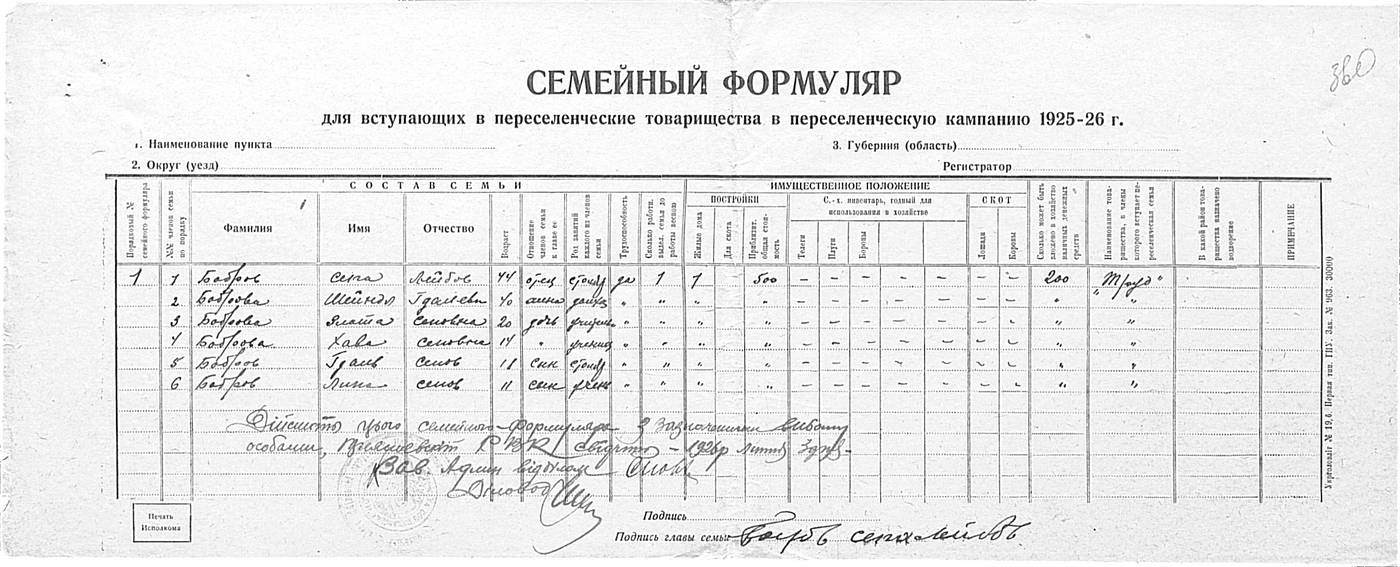 360
СЕМЕЙНЫЙ ФОРМУЛЯР
для вступающих в переселенческие товарищества в переселенческую кампанию 1925-26 г.
1. Наименование пункта 3. Губерния (область)
2. Округ (уезд) Регистратор
Порядковый № семейного формуляра
№№ членов семьи по порядку
СОСТАВ СЕМЬИ
Фамилия
Имя
Отчество
Возраст
Отношение членов семьи к главе ее
Род занятий каждого из членов семьи
Трудоспособность
Сколько работн. выдел. семья до работы весною
ИМУЩЕСТВЕННОЕ ПОЛОЖЕНИЕ
ПОСТРОЙКИ
Жилые дома
Для скота
Приблизит. общая стоимость
С.-х. инвентарь, годный для использования в хозяйстве
Телеги
Плуги
Бороны
СКОТ
Лошади
Коровы
Сколько может быть вложено в хозяйство наличных денежных средств
Наименование товарищества, в члены которого вступает переселенческая семья
В какой район товарищества назначено водворение
ПРИМЕЧАНИЕ
1 1 Бобров Сена Лейбов 44 отец столяр да 1 1 500 – – – – – – – 200 „Труд"
2 Боброва Шейндл Гдалевна 40 " " " " – – – – – – " "
3 Боброва Злота Сеновна 20 дочь " " " " – – – – – – " "
4 Боброва Хава Сеновна 14 " учениц " " " " – – – – – – " "
5 Бобров Гдаль Сенов 18 сын столяр " " " " – – – – – – " "
6 Бобров Сенов 11 сын учен " " " " – – – – – – " "
цього семейного формуляра з зазначеними
особами, РВК 1926р
Зав Адмін відділом
Діловод
Печать
Исполкома
Подпись
Подпись главы семьи Бобров Сена Лейбов
Укрполіліт № 19,6. Первая тип. ГПУ. Зак. № 963. 30000